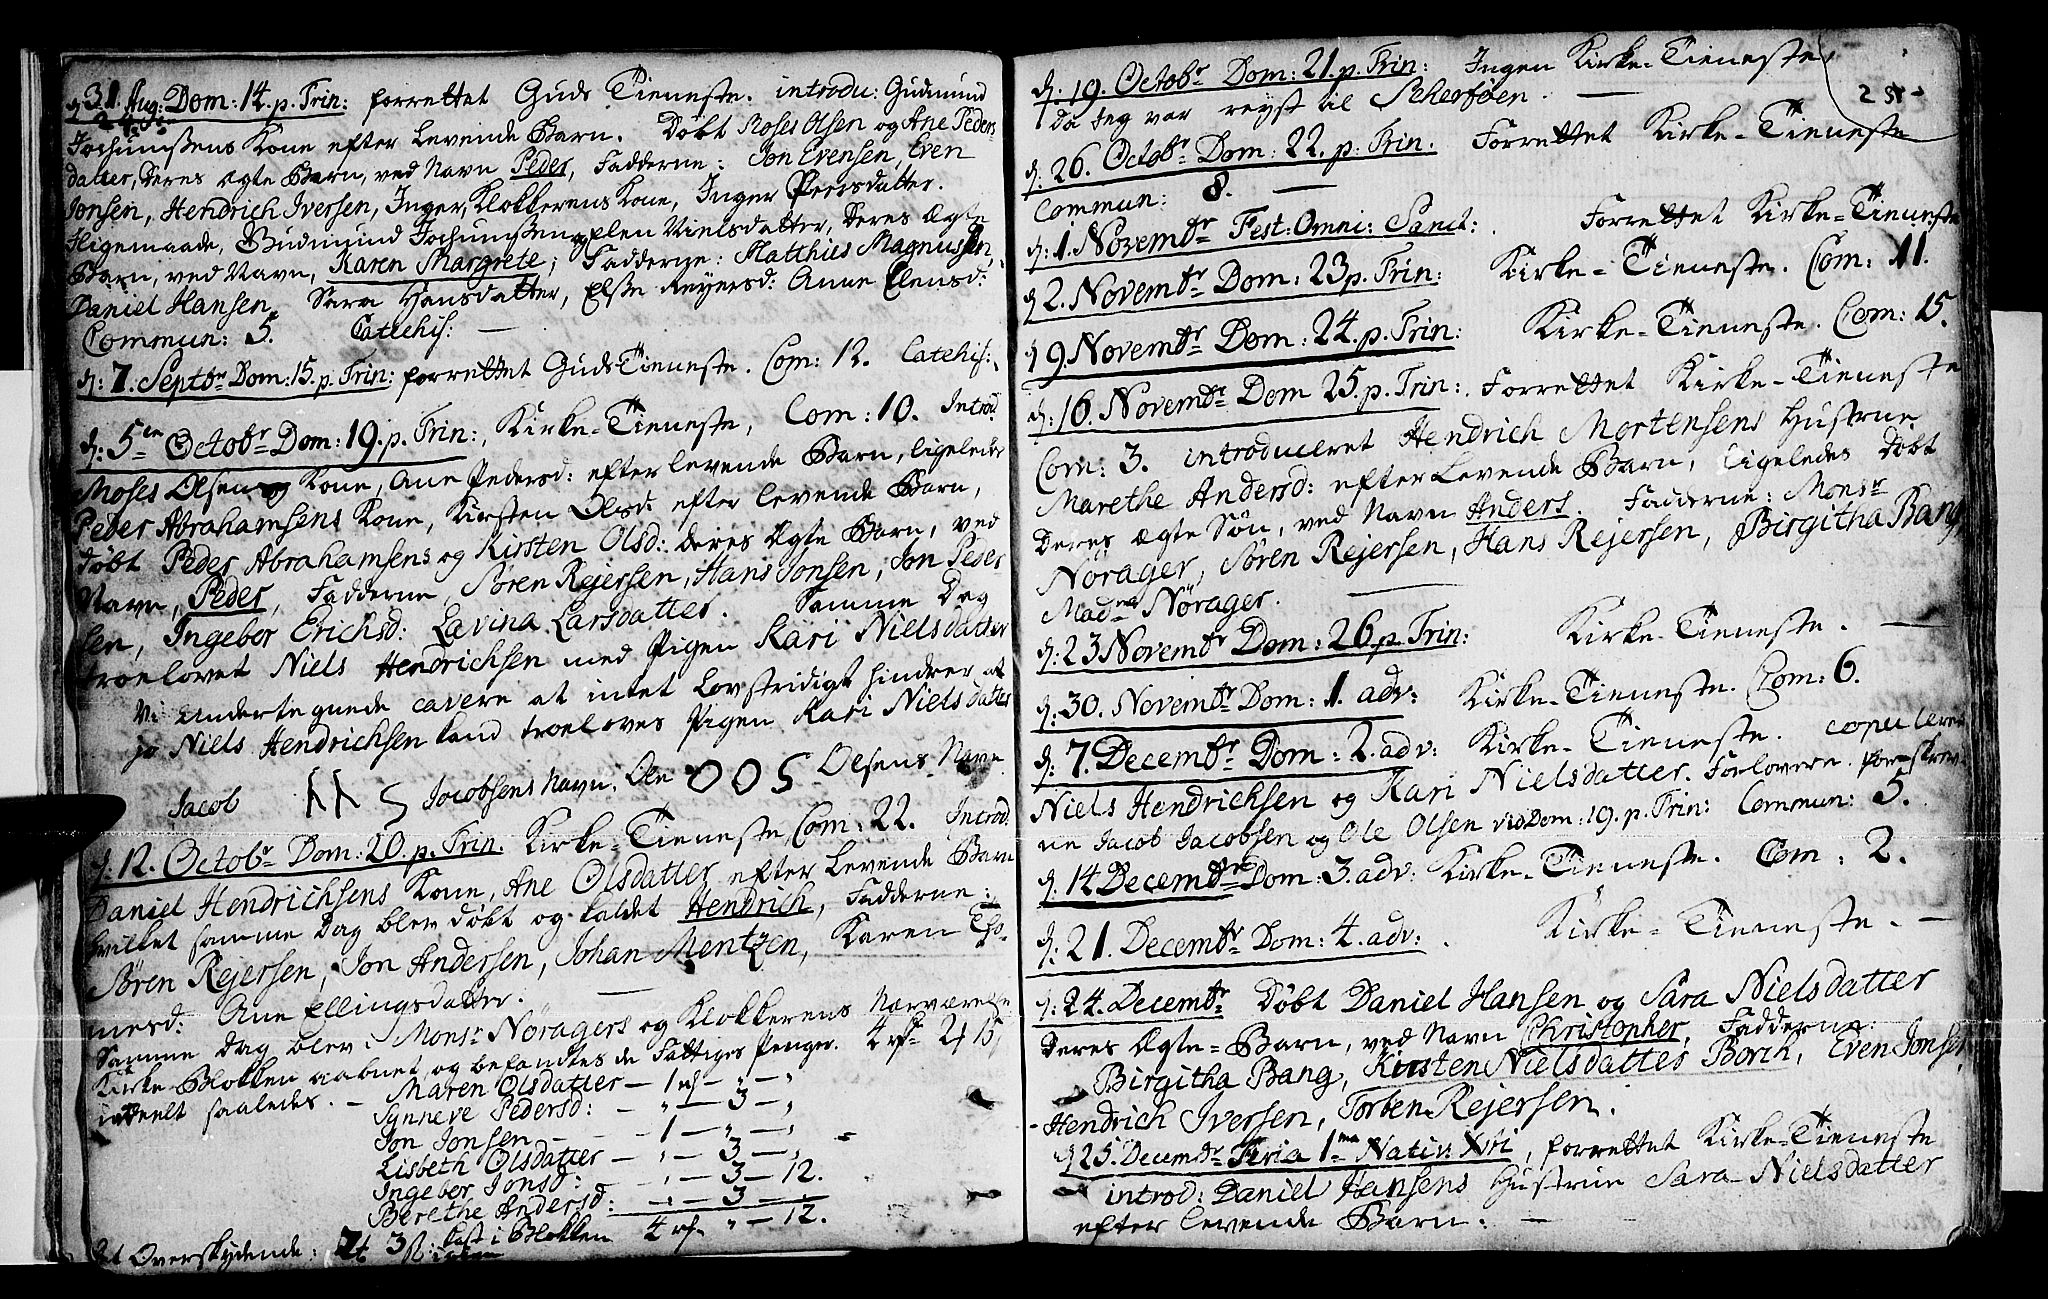 d: 31. Aug: Dom: 14. p. Trin: forrettet Guds Tieneste. introdu: Gudmund
Jochumsens Kone efter Levende Barn. Døbt Moses Olsen og Ane Peders
datter, deres ægte Barn, ved Navn Peder, Fadderne: Jon Evensen, Even
Jonsen, Hendrich Iversen, Inger, Klokkerens Kone, Inger Peersdatter.
Ligemaade, Gudmund Jochumsen og Elen Nielsdatter, deres ægte
Barn, ved Navn, Karen Margrete; Fadderne: Matthias Magnussen,
Daniel Hansen, Sara Hansdatter, Else Reyersd: Anne Elensd:
Commun: 5. Catechis: —
d: 7. Septbr Dom: 15. p. Trin: forrettet Guds Tieneste. Com: 12. Catechis:
d: 5te Octobr Dom: 19. p. Trin:, Kirke-Tieneste, Com: 10. Introd
Moses Olsens Kone, Ane Pedersd: efter levende Barn, ligeledes
Peder Abrahamsens Kone, Kirsten Olsd: efter levende Barn,
døbt Peder Abrahamsens og Kirsten Olsd: deres ægte Barn, ved
Navn, Peder, Fadderne, Søren Rejersen, Hans Jonsen, Jon Peder-
sen, Ingebor Erichsd: Lavina Larsdatter. Samme Dag
troelovet Niels Hendrichsen med Pigen Kari Nielsdatter
Vi undertegnede cavere at intet Lovstridigt hindrer at
jo Niels Hendrichsen kand troeloves Pigen Kari Nielsdatter
Jacob Jacobsens Navn. Ole OOS Olsens Navn.
d: 12. Octobr Dom: 20. p. Trin. Kirke-Tieneste, Com: 22. Introd.
Daniel Hendrichsens Kone, Ane Olsdatter efter Levende Barn
hvilket samme Dag blev døbt og kaldet Hendrich, Fadderne:
Søren Rejersen, Jon Andersen, Johan Mentzen, Karen Tho-
mesd: Ane Ellingsdatter. —
Samme Dag blev i Monsr Nøragers og Klokkerens Nærværelse
Kirke-Blokken aabnet, og befandtes de Fattiges Penger. 4 rf 2
uddeelt saaledes. — Maren Olsdatter — 1 rf — „ — „
Synneve Pedersd: — „ — 3 — „
Jon Jonsen — 1 — „ — „
Lisbeth Olsdatter — „ — 3 — „
Ingebor Jonsd: — „ — 3 — 12.
Berethe Andersd: — „ — 3 —
4 rf „ — 12.
Det Overskydende: 3 ß: i Blokken
d: 19. Octobr Dom: 21. p. Trin: Ingen Kirke-Tieneste,
Da Jeg var reyst til Scherføen. —
d: 26. Octobr Dom: 22. p. Trin. Forrettet Kirke-Tieneste
Commun: 8. —
d: 1. Novembr Fest: Omni: Sanct: Forrettet Kirke-Tieneste
d 2. Novembr Dom: 23 p. Trin: Kirke-Tieneste. Com: 11.
d 9. Novembr Dom: 24. p. Trin: Kirke-Tieneste. Com: 15.
d: 16. Novembr Dom 25. p. Trin: Forrettet Kirke-Tieneste
Com: 3. introduceret Hendrich Mortensens Hustrue
Marethe Andersd: efter Levende Barn, ligeledes døbt
deres ægte Søn, ved Navn Anders. Fadderne: Monsr
Nørager, Søren Rejersen, Hans Rejersen, Birgitha Bang
Madme Nørager. —
d: 23 Novembr Dom: 26. p. Trin: Kirke-Tieneste. —
d: 30. Novembr Dom: 1. adv: Kirke-Tieneste. Com: 6.
d: 7. Decembr Dom: 2. adv: Kirke-Tieneste. copuleret
Niels Hendrichsen og Kari Nielsdatter. Forlovere. forskrev-
ne Jacob Jacobsen og Ole Olsen vid Dom: 19. p. Trin: Commun: 5.
d. 14 Decembr Dom: 3. adv: Kirke-Tieneste. Com: 2.
d: 21. Decembr Dom: 4. adv: Kirke-Tieneste. —
d: 24. Decembr Døbt Daniel Hansen og Sara Nielsdatter
deres ægte-Barn, ved Navn Christopher, Fadderne:
Birgitha Bang, Kirsten Nielsdatter Borch, Even Jonsen,
Hendrich Iversen, Torben Rejersen.
d 25. Decembr Feria 1ma Nativ: Xsti, forrettet Kirke-Tieneste
introd: Daniel Hansens Hustrue Sara Nielsdatter
efter levende Barn. —